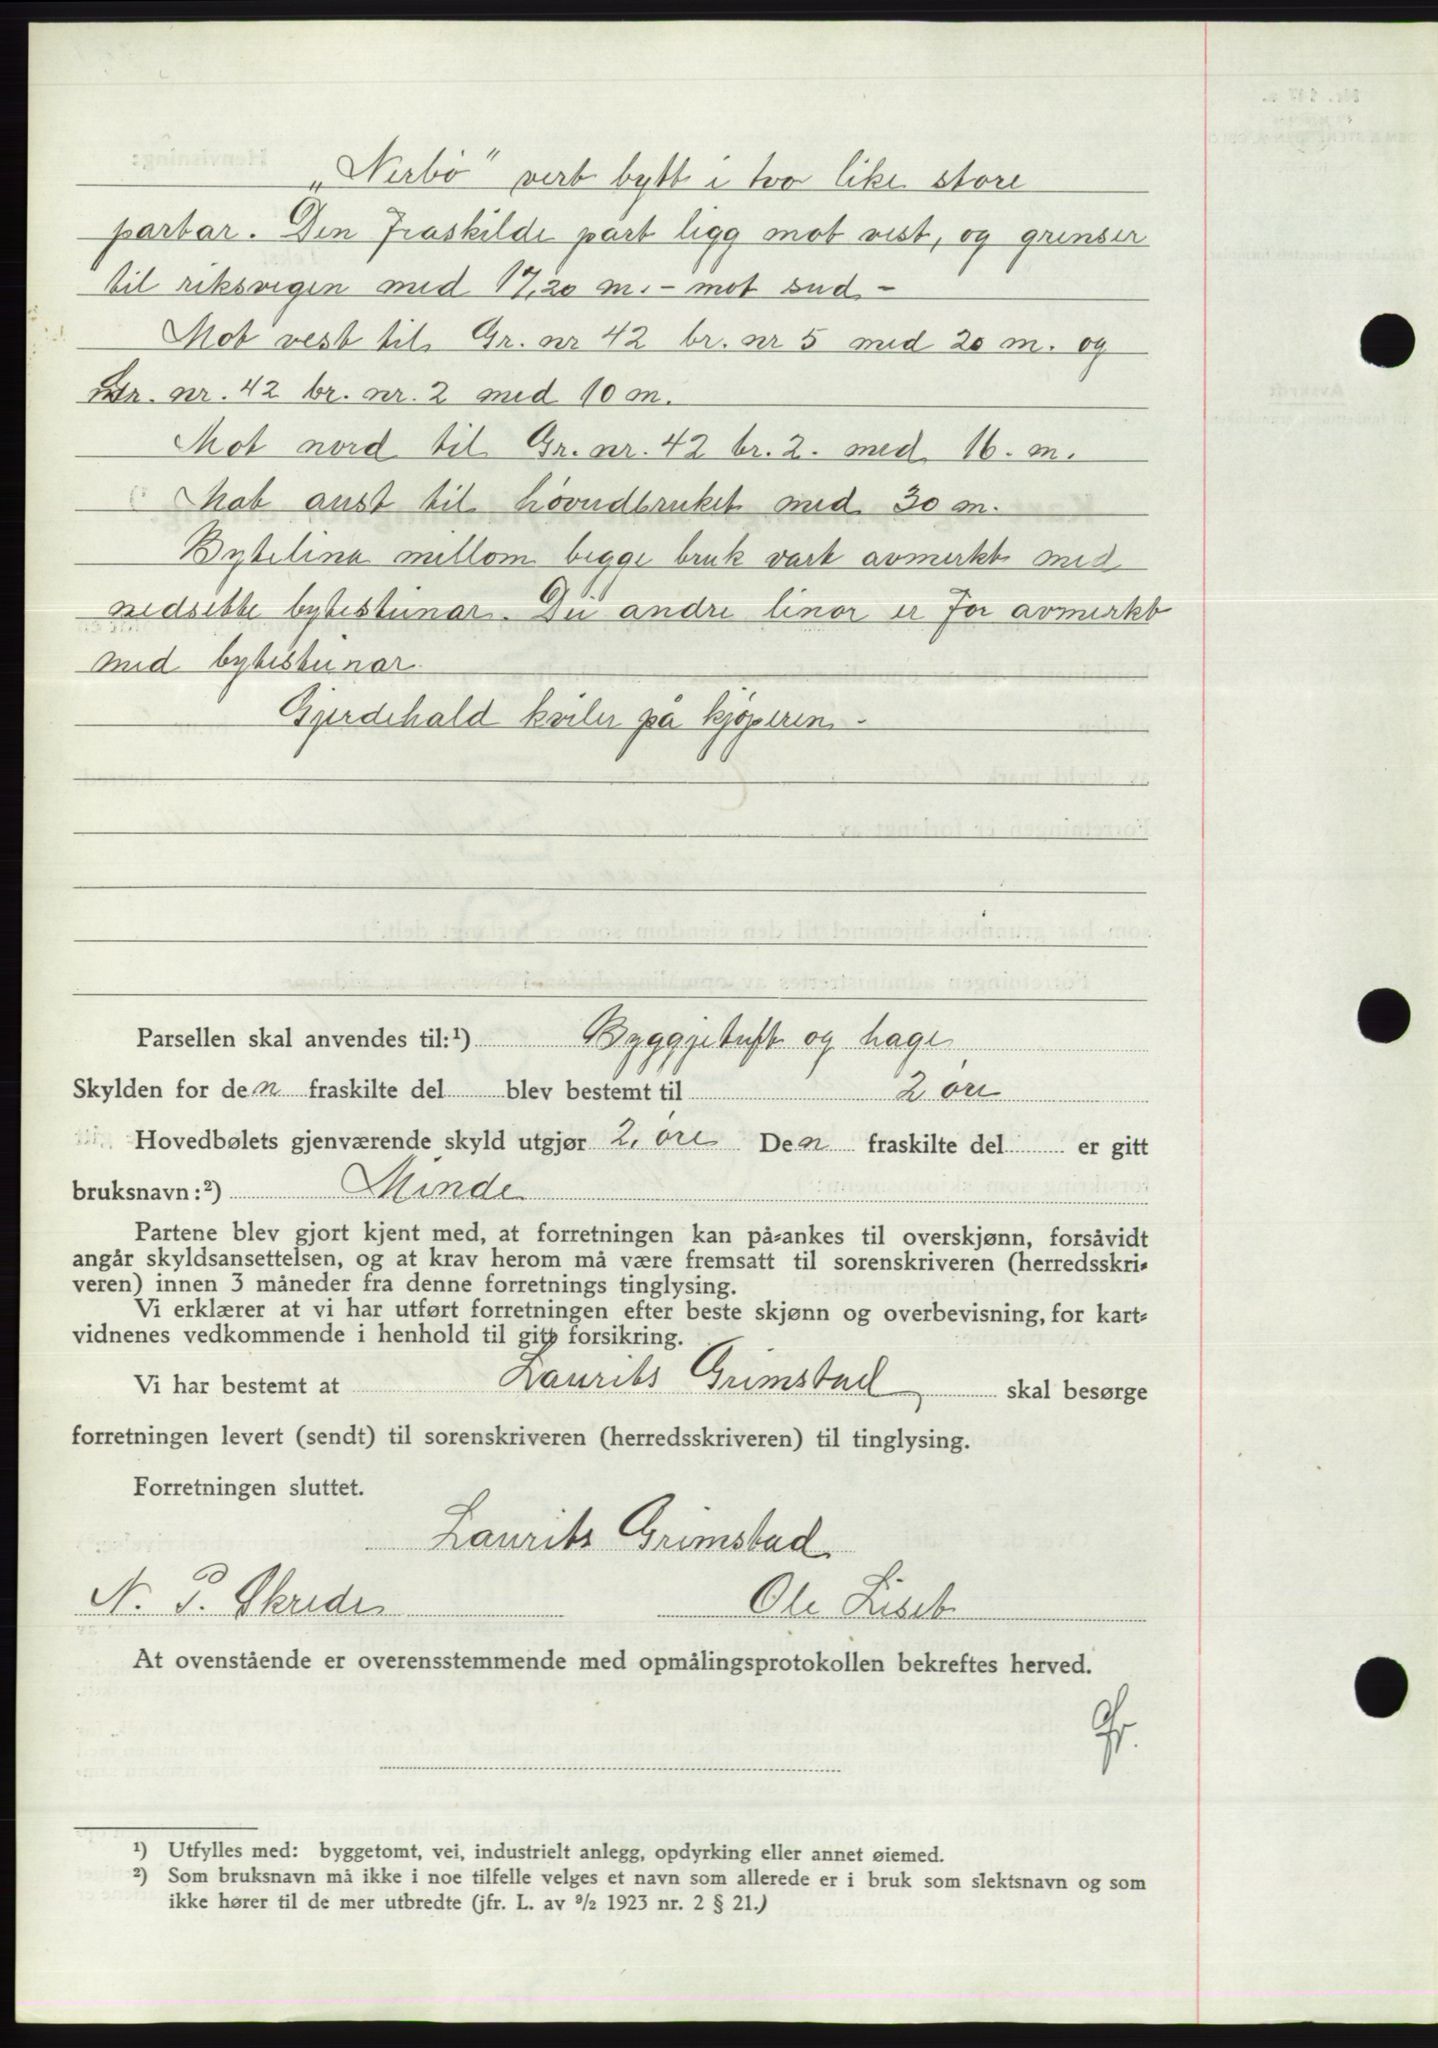 „Nerbö" vert bytt i tvo like store
partar. Den fraskilde part ligg mot vest, og grenser
til riksvegen med 17,20 m. - mot sud -
Mot vest til Gr. nr 42 br. nr 5 med 20 m. og
Gr. nr. 42 br. nr. 2 med 10 m.
Mot nord til Gr. nr. 42 br. 2. med 16. m.
Mot aust til hovudbruket med 30 m.
Bytelina millom begge bruk vart avmerkt med
nedsette bytesteinar. Dei andre linor er for avmerkt
med bytesteinar.
Gjerdehald kviler på kjöperen -
Parsellen skal anvendes til:¹) Byggjetuft og hage
Skylden for den fraskilte del blev bestemt til 2 öre
Hovedbølets gjenværende skyld utgjør 2, öre Den fraskilte del er gitt
bruksnavn:²) Minde
Partene blev gjort kjent med, at forretningen kan på-ankes til overskjønn, forsåvidt
angår skyldsansettelsen, og at krav herom må være fremsatt til sorenskriveren (herredsskri-
veren) innen 3 måneder fra denne forretnings tinglysing.
Vi erklærer at vi har utført forretningen efter beste skjønn og overbevisning, for kart-
vidnenes vedkommende i henhold til gitt forsikring.
Vi har bestemt at Laurits Grimstad skal besørge
forretningen levert (sendt) til sorenskriveren (herredsskriveren) til tinglysing.
Forretningen sluttet.
Laurits Grimstad
N. P. Skrede Ole Liset
At ovenstående er overensstemmende med opmålingsprotokollen bekreftes herved.
Gr.
¹) Utfylles med: byggetomt, vei, industrielt anlegg, opdyrking eller annet øiemed.
²) Som bruksnavn må ikke i noe tilfelle velges et navn som allerede er i bruk som slektsnavn og som
ikke hører til de mer utbredte (jfr. L. av 9/2 1923 nr. 2 § 21.)